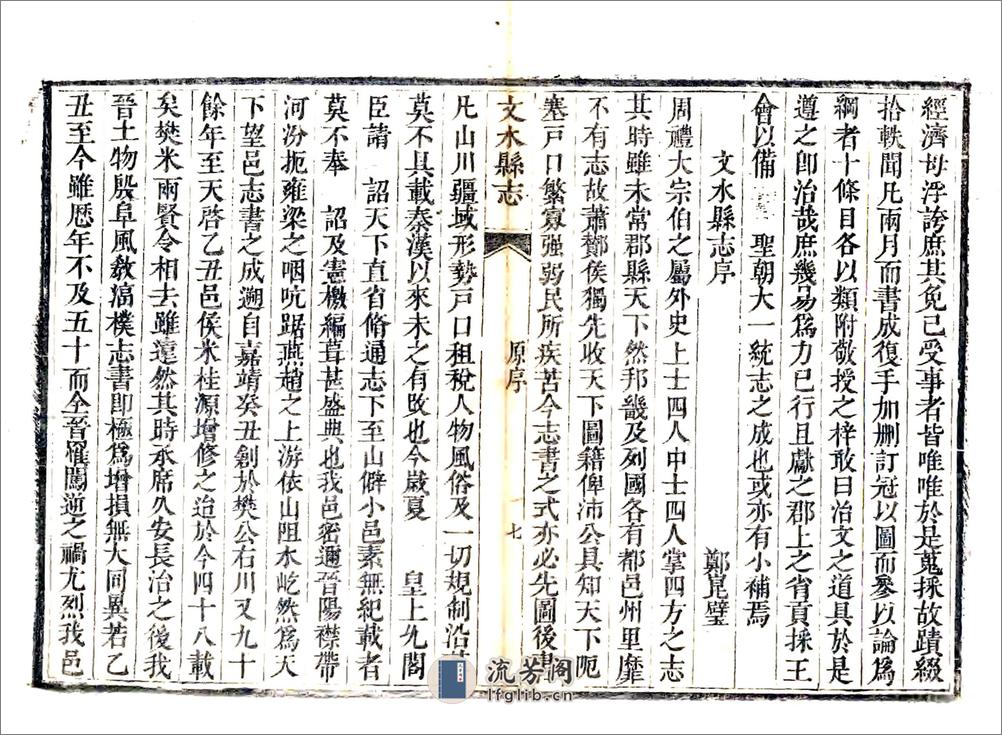 經濟毋浮誇庶其免已受事者皆唯唯於是蒐採故蹟綴
拾軼聞凡兩月而書成復手加刪訂冠以圖而參以論爲
綱者十條目各以類附敬授之梓敢曰冶文之道具於是
遵之卽治哉庶幾易爲力已行且獻之郡上之省貢採王
會以備 聖朝大一統志之成也或亦有小補焉
文水縣志序
鄭崑璧
周禮大宗伯之屬外史上士四人中士四人掌四方之志
其時雖未常郡縣天下然邦畿及列國各有都邑州里靡
不有志故蕭酇侯獨先收天下圖籍俾沛公具知天下阨
塞戸口繁寡强弱民所疾苦今志書之式亦必先圖後
文水縣志
原序
七
凡山川疆域形勢戸口租稅人物風俗及一切規制沿
莫不具載秦漢以來未之有攺也今歲夏 皇上允閣
臣請 詔天下直省脩通志下至山僻小邑素無紀載者
莫不奉 詔及憲檄編葺甚盛典也我邑密邇晉陽襟帶
河汾扼雍梁之咽吭踞燕趙之上游依山阻水屹然爲天
下望邑志書之成遡自嘉靖癸丑創於樊公右川又九十
餘年至天啓乙丑邑侯米桂源增修之迨於今四十八載
矣樊米兩賢令相去雖遠然其時承席久安長治之後我
晉土物殷阜風敎湻樸志書即極爲增損無大同異若乙
丑至今雖歷年不及五十而全晉罹闖逆之禍尤烈我邑
流芳阁
lfglib.cn